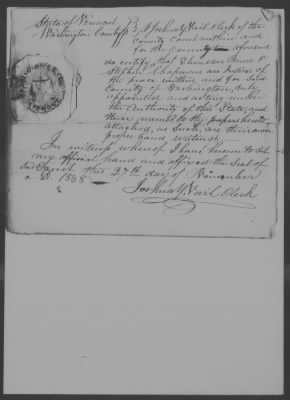 State of Vermont
Washington County ss
I Joshua Y. Vail Clerk of the
County Court within and
for the County aforesaid
do certify, that Ebenezer
Stephen Chapman are Justices of
the peace within and for said
County of Washington, duly
appointed and acting under
the Authority of this State, and
their names to the papers hereto
attached, as such, are their own
proper hand writing.
In witness whereof I have hereunto set
my official hand and affixed the Seal of
said Court this 27th day of November
1838
Joshua Y. Vail Clerk